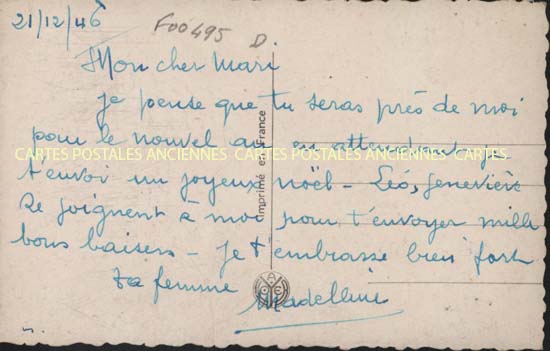 21/12/46
F00495 D
Mon cher Mari
je pense que tu seras près de moi
pour le nouvel an en attendant je
CARTES POSTALES ANCIENNES CARTES POSTALES ANCIENNES CARTES
t'envoi un joyeux noël - Léo, Geneviève
se joignent à moi pour t'envoyer mille
bons baisers - je t'embrasse bien fort
ta femme Madelleine
Imprimé en France